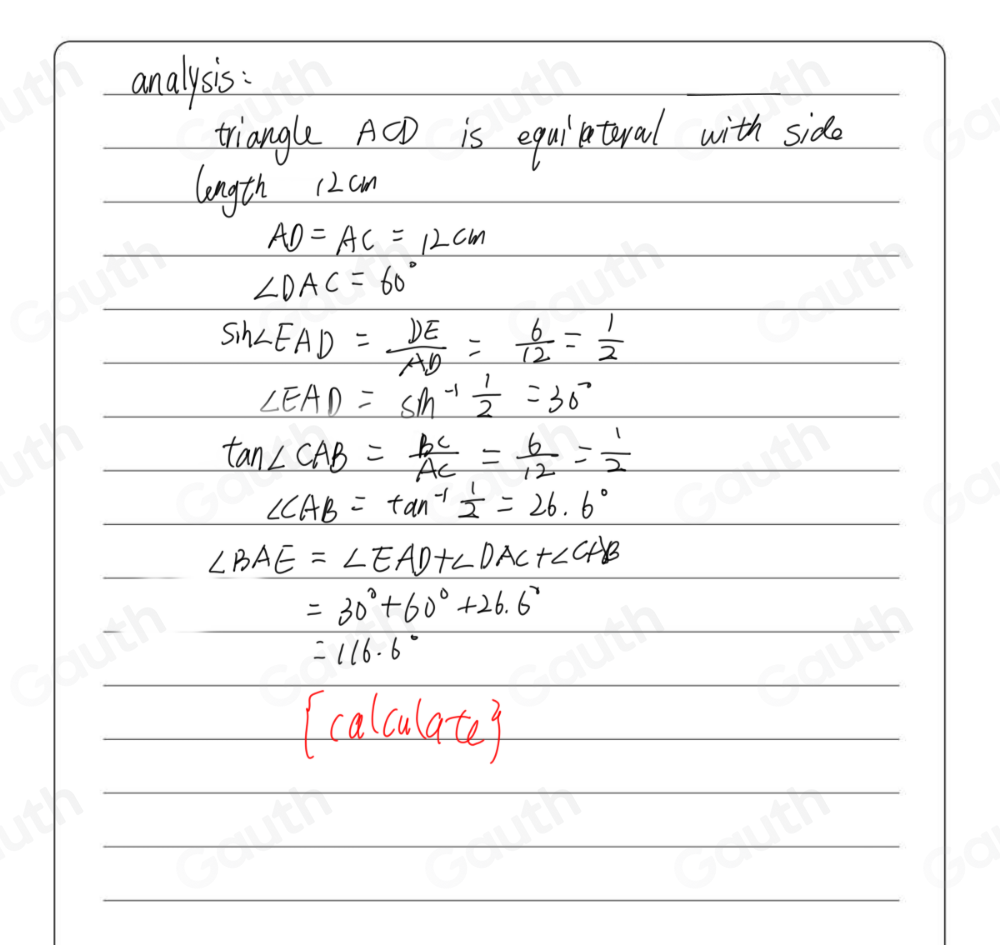 analysis:
triangle ACD is equilateral with side
length 12cm
AD = AC = 12cm
∠DAC = 60°
sin∠EAD = DE/AD = 6/12 = 1/2
∠EAD = sin⁻¹ 1/2 = 30°
tan∠CAB = BC/AC = 6/12 = 1/2
∠CAB = tan⁻¹ 1/2 = 26.6°
∠BAE = ∠EAD+∠DAC+∠CAB
= 30°+60°+26.6°
= 116.6°
[calculate}